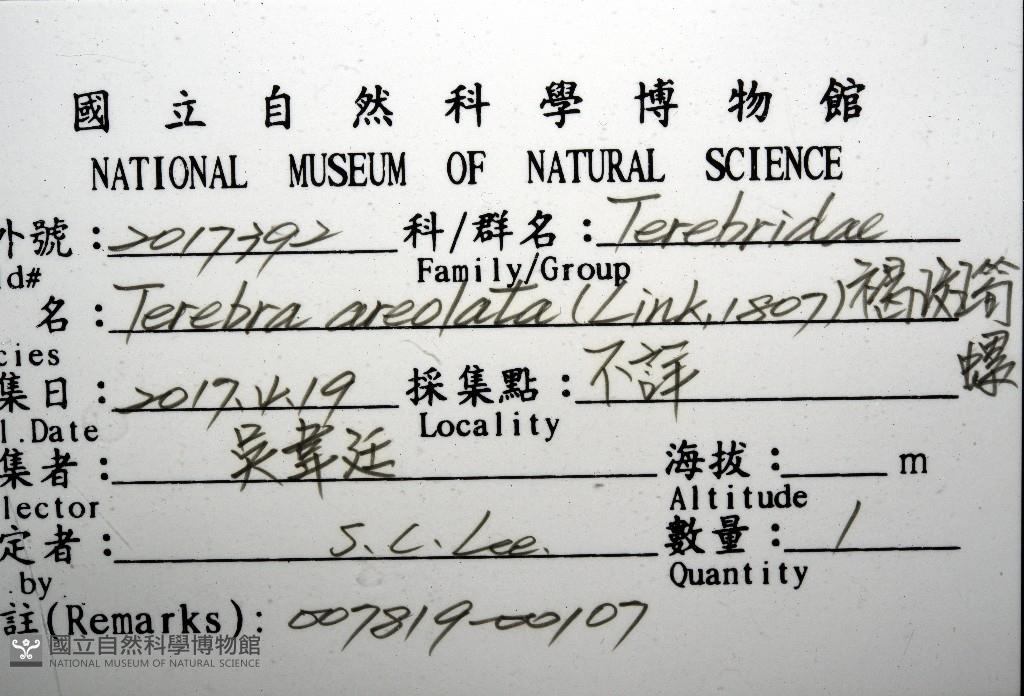 國立自然科學博物館
NATIONAL MUSEUM OF NATURAL SCIENCE
外號：2017392 科/群名：Terebridae
ld# Family/Group
名：Terebra areolata (Link, 1807)
cies 螺
集日：2017.4.19 採集點：不詳
l.Date Locality
集者：吳韋廷 海拔： m
lector Altitude
定者：S. C. Lee. 數量：1
.by Quantity
註(Remarks)：007819-00107
國立自然科學博物館
NATIONAL MUSEUM OF NATURAL SCIENCE